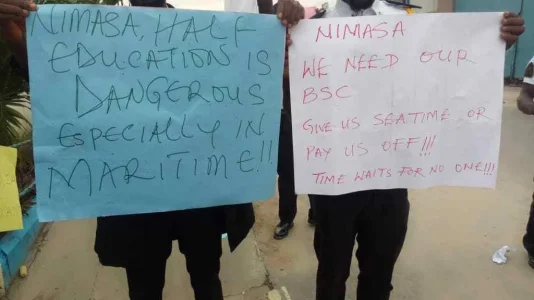 NIMASA, HALF
EDUCATION IS
DANGEROUS
ESPECIALLY IN
MARITIME!!
NIMASA
WE NEED OUR
BSC
GIVE US SEATIME OR
PAY US OFF!!!
TIME WAITS FOR NO ONE!!!